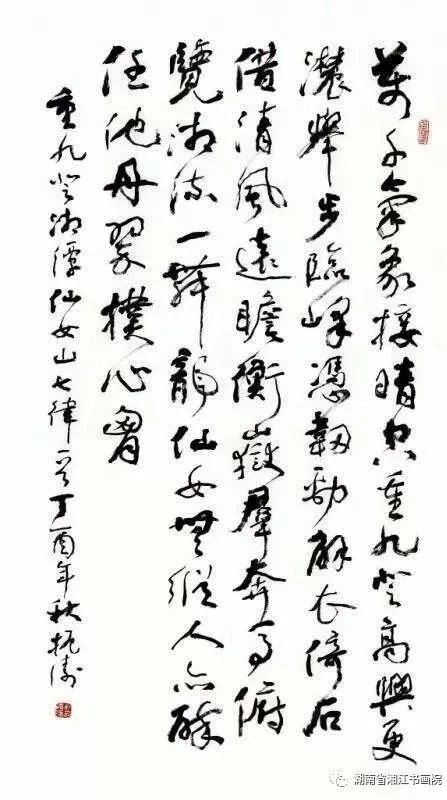 萬千氣象接晴空重九登高興更
濃舉步臨峰憑韌勁解衣倚石
借清風遠瞻衡嶽羣奔馬俯
覽湘流一舞龍仙女無縱人亦醉
任他丹翠撲心胸
重九登湘潭仙女山七律一首丁酉年秋振濤
湖南省湘江书画院